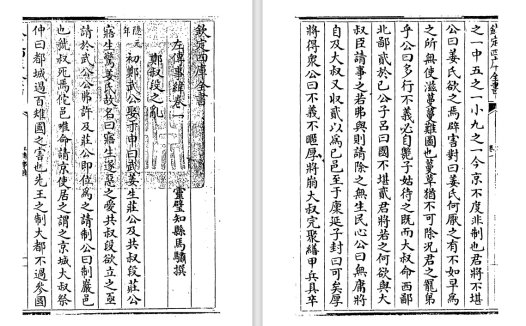 欽定四庫全書
左傳事緯卷一
靈璧知縣馬驌撰
鄭叔段之亂
隱元年初鄭武公娶于申曰武姜生莊公及共叔段莊公
寤生驚姜氏故名曰寤生遂惡之愛共叔段欲立之亟
請於武公公弗許及莊公即位為之請制公曰制嚴邑
也虢叔死焉佗邑唯命請京使居之謂之京城大叔祭
仲曰都城過百雉國之害也先王之制大都不過參國
之一中五之一小九之一今京不度非制也君將不堪
公曰姜氏欲之焉辟害對曰姜氏何厭之有不如早為
之所無使滋蔓蔓難圖也蔓草猶不可除況君之寵弟
乎公曰多行不義必自斃子姑待之既而大叔命西鄙
北鄙貳於己公子呂曰國不堪貳君將若之何欲與大
叔臣請事之若弗與則請除之無生民心公曰無庸將
自及大叔又收貳以為己邑至于廩延子封曰可矣厚
將得衆公曰不義不暱厚將崩大叔完聚繕甲兵具卒